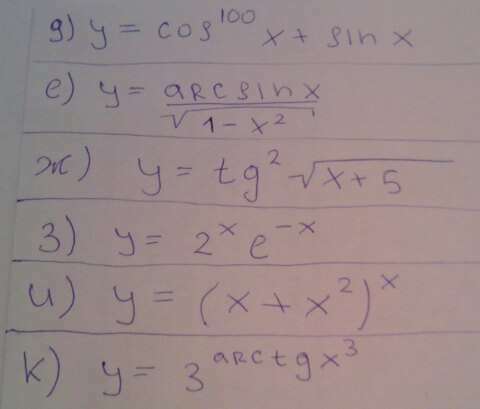 д) y = cos¹⁰⁰ x + sin x
е) y = arcsin x / √(1 - x²)
ж) y = tg² √(x + 5)
з) y = 2ˣ e⁻ˣ
и) y = (x + x²)ˣ
к) y = 3^(arctg x³)